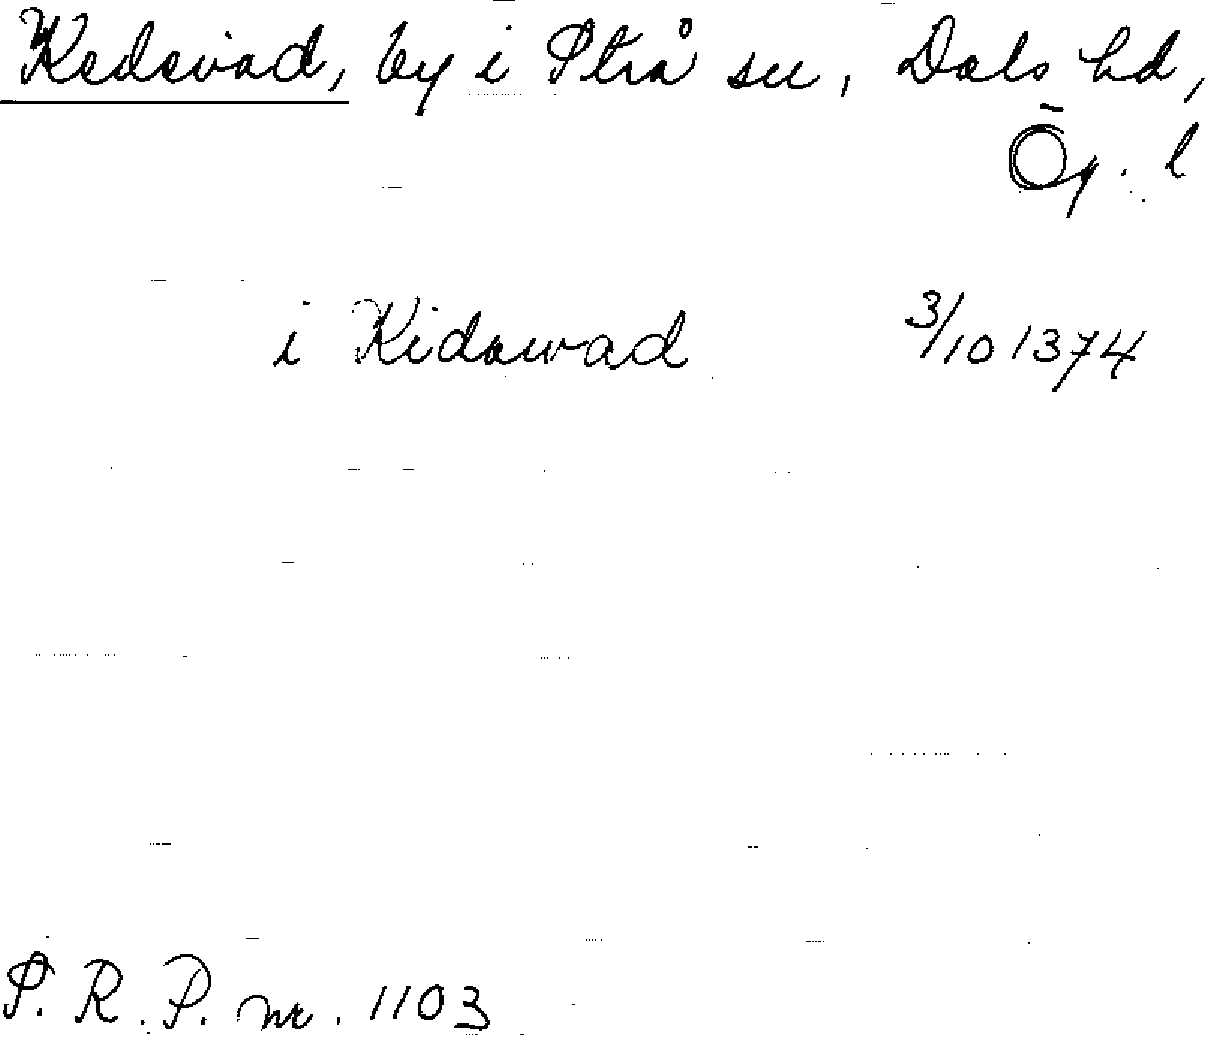 Kedevad, by i Strå sn, Dals hd,
Ög. l
i Kidawad 3/10 1374
S. R. P. nr. 1103